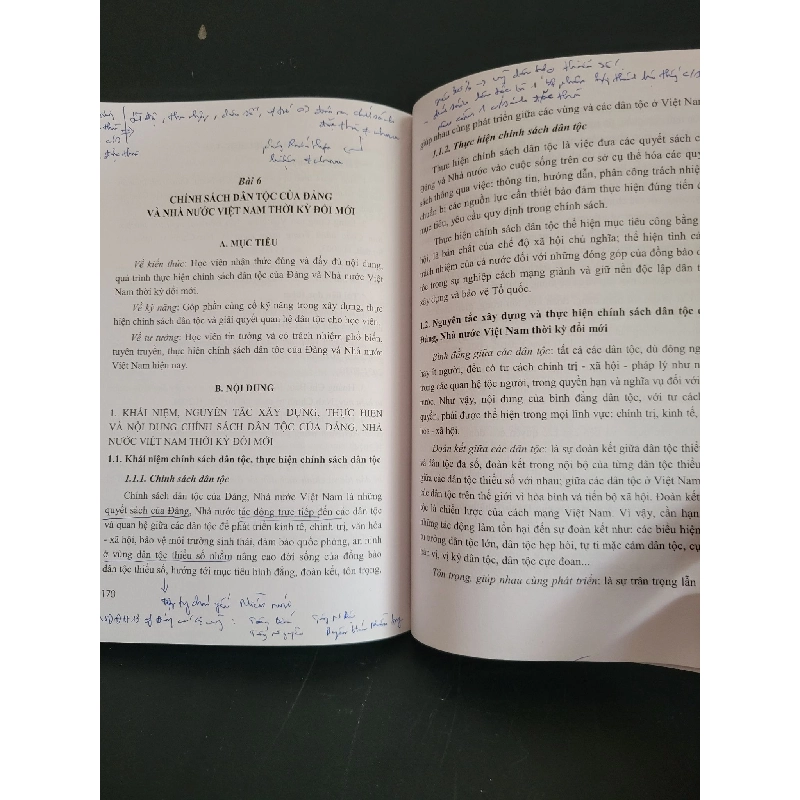 Bài 6
CHÍNH SÁCH DÂN TỘC CỦA ĐẢNG
VÀ NHÀ NƯỚC VIỆT NAM THỜI KỲ ĐỔI MỚI
A. MỤC TIÊU
Về kiến thức: Học viên nhận thức đúng và đầy đủ nội dung,
quá trình thực hiện chính sách dân tộc của Đảng và Nhà nước Việt
Nam thời kỳ đổi mới.
Về kỹ năng: Góp phần củng cố kỹ năng trong xây dựng, thực
hiện chính sách dân tộc và giải quyết quan hệ dân tộc cho học viên.
Về tư tưởng: Học viên tin tưởng và có trách nhiệm phổ biến,
tuyên truyền, thực hiện chính sách dân tộc của Đảng và Nhà nước
Việt Nam hiện nay.
B. NỘI DUNG
1. KHÁI NIỆM, NGUYÊN TẮC XÂY DỰNG, THỰC HIỆN
VÀ NỘI DUNG CHÍNH SÁCH DÂN TỘC CỦA ĐẢNG, NHÀ
NƯỚC VIỆT NAM THỜI KỲ ĐỔI MỚI
1.1. Khái niệm chính sách dân tộc, thực hiện chính sách dân tộc
1.1.1. Chính sách dân tộc
Chính sách dân tộc của Đảng, Nhà nước Việt Nam là những
quyết sách của Đảng, Nhà nước tác động trực tiếp đến các dân tộc
và quan hệ giữa các dân tộc để phát triển kinh tế, chính trị, văn hóa
- xã hội, bảo vệ môi trường sinh thái, đảm bảo quốc phòng, an ninh
ở vùng dân tộc thiểu số nhằm nâng cao đời sống của đồng bào
dân tộc thiểu số, hướng tới mục tiêu bình đẳng, đoàn kết, tôn trọng,
170
giúp nhau cùng phát triển giữa các vùng và các dân tộc ở Việt Nam
1.1.2. Thực hiện chính sách dân tộc
Thực hiện chính sách dân tộc là việc đưa các quyết sách c
Đảng và Nhà nước vào cuộc sống trên cơ sở cụ thể hóa các quy
sách thông qua việc: thông tin, hướng dẫn, phân công trách nhiệ
chuẩn bị các nguồn lực cần thiết bảo đảm thực hiện đúng tiến
mục tiêu, yêu cầu quy định trong chính sách.
Thực hiện chính sách dân tộc thể hiện mục tiêu công bằng
hội, là bản chất của chế độ xã hội chủ nghĩa; thể hiện tình cả
trách nhiệm của cả nước đối với những đóng góp của đồng bào
tộc trong sự nghiệp cách mạng giành và giữ nền độc lập dân t
xây dựng và bảo vệ Tổ quốc.
1.2. Nguyên tắc xây dựng và thực hiện chính sách dân tộc
Đảng, Nhà nước Việt Nam thời kỳ đổi mới
Bình đẳng giữa các dân tộc: tất cả các dân tộc, dù đông ng
hay ít người, đều có tư cách chính trị - xã hội - pháp lý như n
trong các quan hệ tộc người, trong quyền hạn và nghĩa vụ đối với
nước. Như vậy, nội dung của bình đẳng dân tộc, với tư cách
quyết, phải được thể hiện trong mọi lĩnh vực: chính trị, kinh tế,
hóa - xã hội.
Đoàn kết giữa các dân tộc: là sự đoàn kết giữa dân tộc thiểu
và dân tộc đa số, đoàn kết trong nội bộ của từng dân tộc thiểu
giữa các dân tộc thiểu số với nhau; giữa các dân tộc ở Việt Nam
các dân tộc trên thế giới vì hòa bình và tiến bộ xã hội. Đoàn kết
tộc là chiến lược của cách mạng Việt Nam. Vì vậy, cần hạn
những tác động làm tổn hại đến sự đoàn kết như: các biểu hiện
tư tưởng dân tộc lớn, dân tộc hẹp hòi, tự ti mặc cảm dân tộc, cụ
vị, vị kỷ dân tộc, dân tộc cực đoan...
Tôn trọng, giúp nhau cùng phát triển: là sự trân trọng lẫn